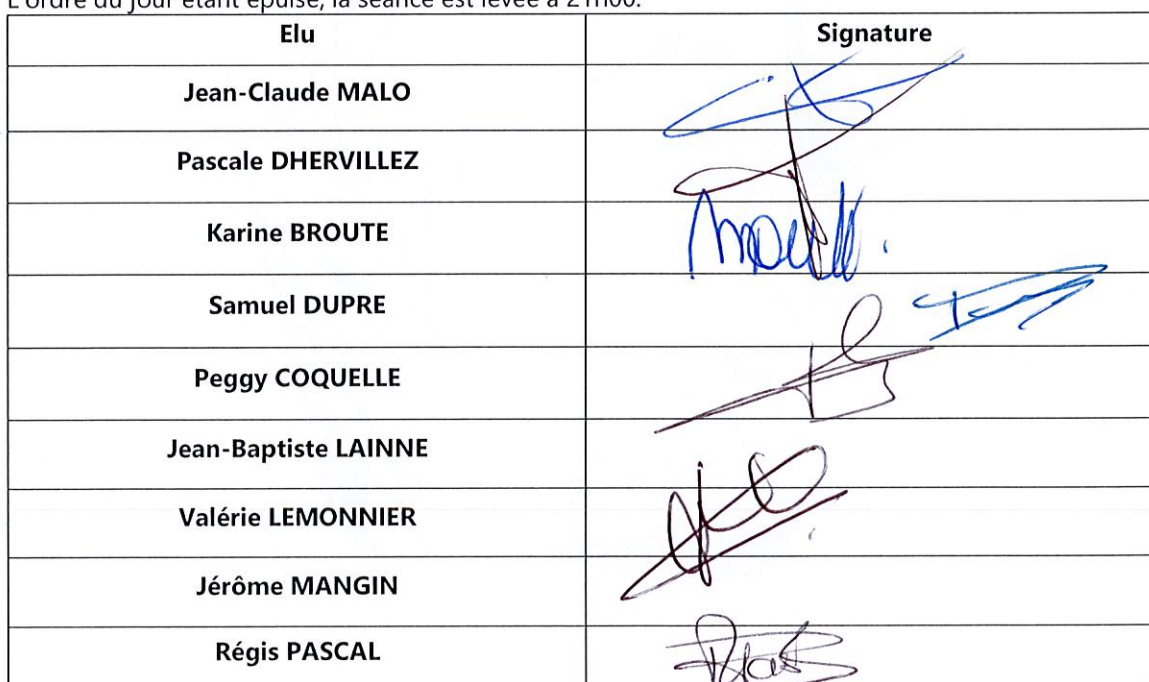 L'ordre du jour étant épuisé, la séance est levée à 21h00.
Elu Signature
Jean-Claude MALO
Pascale DHERVILLEZ
Karine BROUTE
Samuel DUPRE
Peggy COQUELLE
Jean-Baptiste LAINNE
Valérie LEMONNIER
Jérôme MANGIN
Régis PASCAL